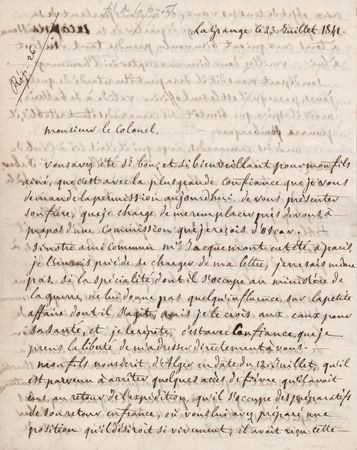 Rép. 26
La Grange le 23 Juillet 1841.
Monsieur le Colonel,
vous avez été si bon, et si bienveillant pour mon fils
ainé, que c'est avec la plus grande confiance que je vous
demande la permission aujourdhui, de vous présenter
son frère, que je charge de me remplacer près de vous, à
propos d'une commission que je reçois d'Oscar.
Si notre ami commun Mr. Jacqueminot eut été à paris
je l'aurois prié de se charger de ma lettre, je ne sais même
pas, si la spécialité dont il s'occupe au ministère de
la guerre, ne lui donne pas quelqu'influence sur la petite
affaire dont il s'agit, mais je le crois aux eaux pour
sa santé, et je le répète, c'est avec confiance, que je
prens la liberté de m'adresser directement à vous.
mon fils nous écrit d'Alger en date du 12 Juillet, qu'il
est parvenu à arrêter quelques accès de fièvre qu'il avoit
eus au retour de l'expédition, qu'il s'occupe des préparatifs
de son retour en france, où vous lui avez préparé une
position qu'il désiroit si vivement, il avoit reçu cette